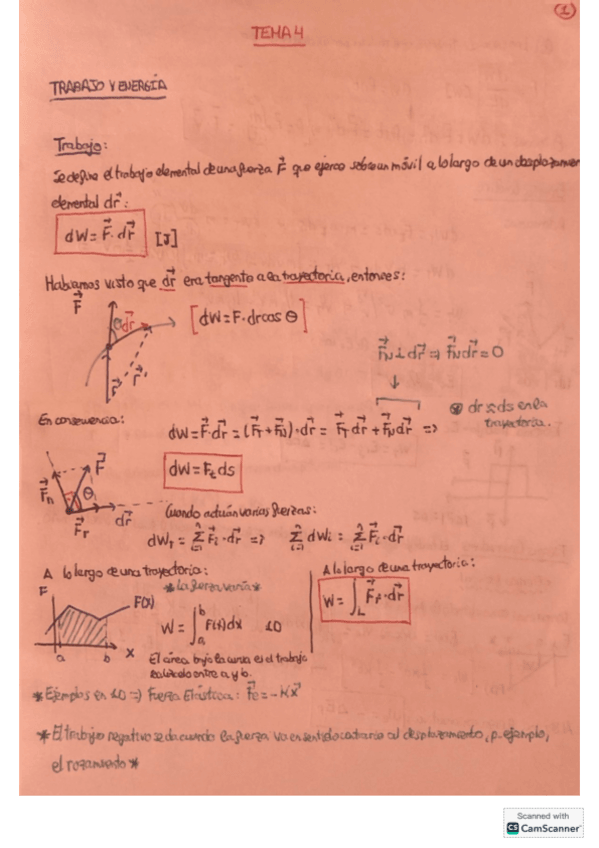 1
TEMA 4
TRABAJO Y ENERGÍA
Trabajo:
Se define el trabajo elemental de una fuerza F⃗ que ejerce sobre un móvil a lo largo de un desplazamien
elemental dr⃗:
dW = F⃗ · dr⃗ [J]
Habíamos visto que dr⃗ era tangente a la trayectoria, entonces:
F⃗
θ dr⃗
[dW = F · dr cos θ]
r⃗ r⃗'
F⃗N ⊥ dr⃗ => F⃗N dr⃗ = 0
dr ≈ ds en la
trayectoria.
En consecuencia:
dW = F⃗ · dr⃗ = (F⃗T + F⃗N) · dr⃗ = F⃗T dr⃗ + F⃗N dr⃗ =>
dW = Ft ds
F⃗n F⃗ θ F⃗T dr⃗
Cuando actúan varias fuerzas:
dWT = Σ F⃗i · dr⃗ => Σ dWi = Σ F⃗i · dr⃗
A lo largo de una trayectoria:
*La fuerza varía*
F F(x) a b x
W = ∫ab F(x)dx 1D
El área bajo la curva es el trabajo
realizado entre a y b.
A lo largo de una trayectoria:
W = ∫L F⃗ · dr⃗
*Ejemplos en 1D => Fuerza Elástica: F⃗e = -Kx⃗
*El trabajo negativo se da cuando la fuerza va en sentido contrario al desplazamiento, p. ejemplo,
el rozamiento*
Scanned with
CS CamScanner